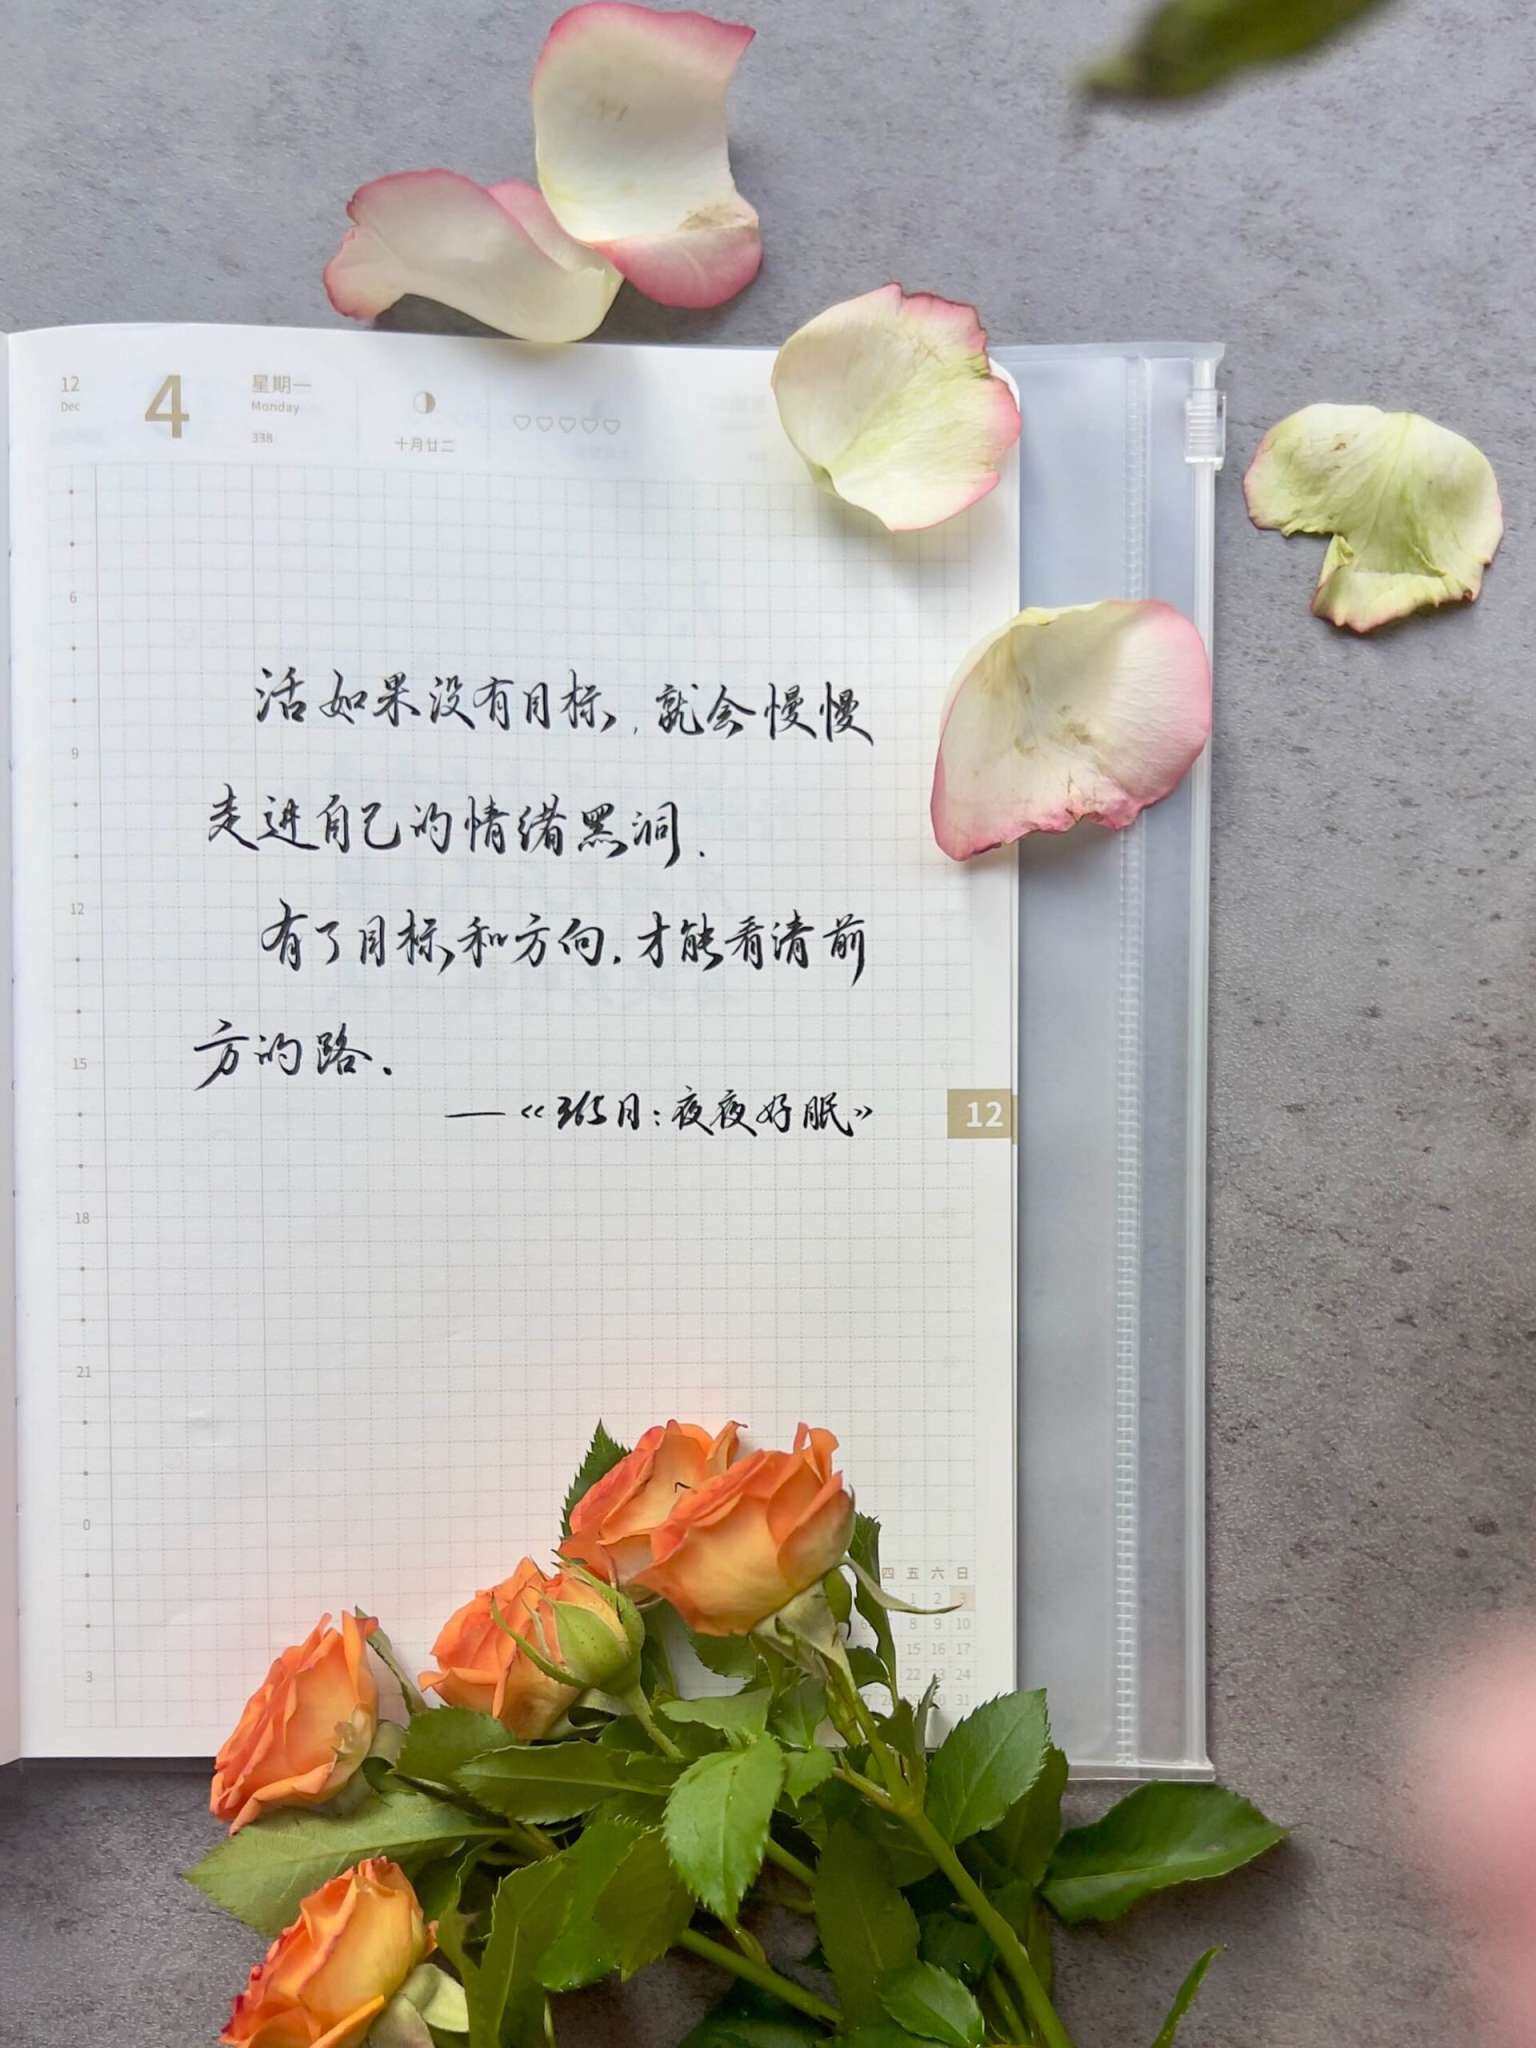 12
Dec
4
星期一
Monday
338
十月廿二
6
9
12
15
18
21
0
3
活如果没有目标，就会慢慢
走进自己的情绪黑洞.
有了目标和方向.才能看清前
方的路.
——《365日:夜夜好眠》
12
四 五 六 日
1 2 3
8 9 10
15 16 17
22 23 24
28 29 30 31